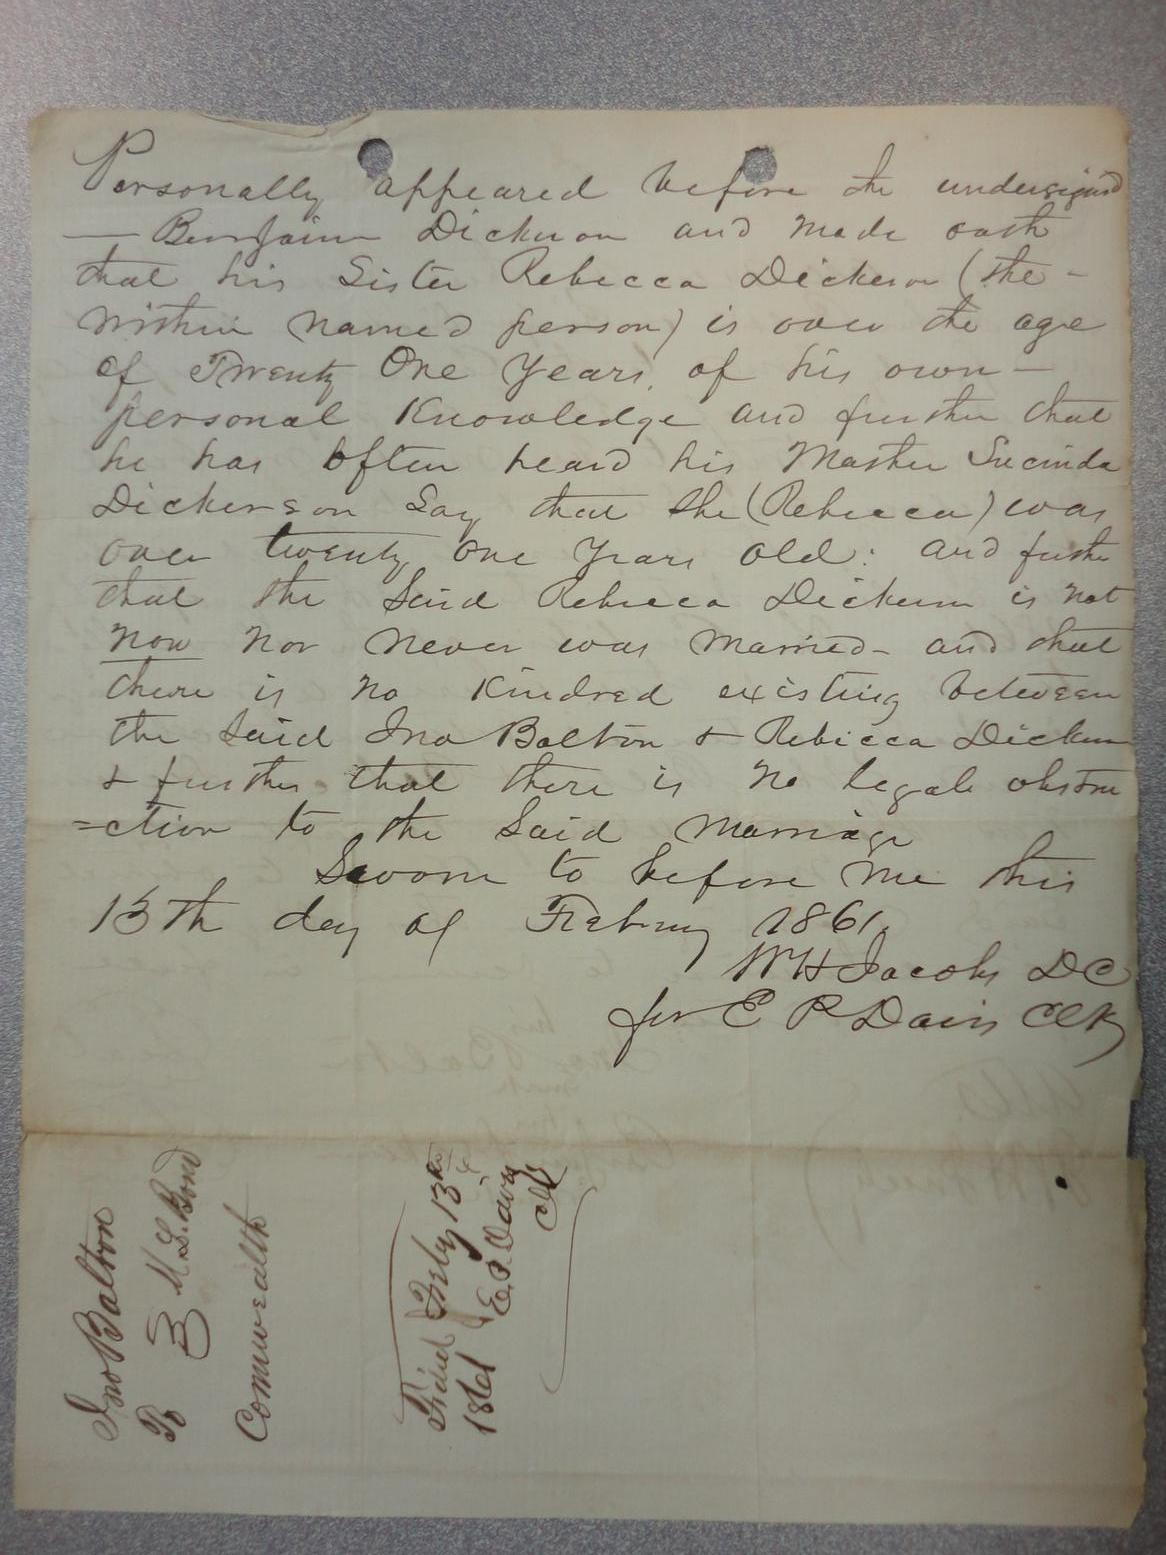 Personally appeared before the undersigned
— Benjamin Dickerson and made oath
that his Sister Rebecca Dickerson (the -
within named person) is over the age
of Twenty One Years, of his own —
personal Knowledge and further that
he has often heard his Master Lucinda
Dickerson Say that She (Rebecca) was
over twenty one years old: and further
that the Said Rebecca Dickerson is not
now nor never was married - and that
there is no Kindred existing between
the Said Jno Bolton & Rebecca Dickerson
& further that there is no legal obstru
=ction to the Said marriage
Sworn to before me this
13th day of Februry 1861.
W H Jacobs DC
for E P Davis Clk
Jno Bolton
To M L Bond
Comwealth
Filed Feby 13th
1861 E. P. Davis
Clk